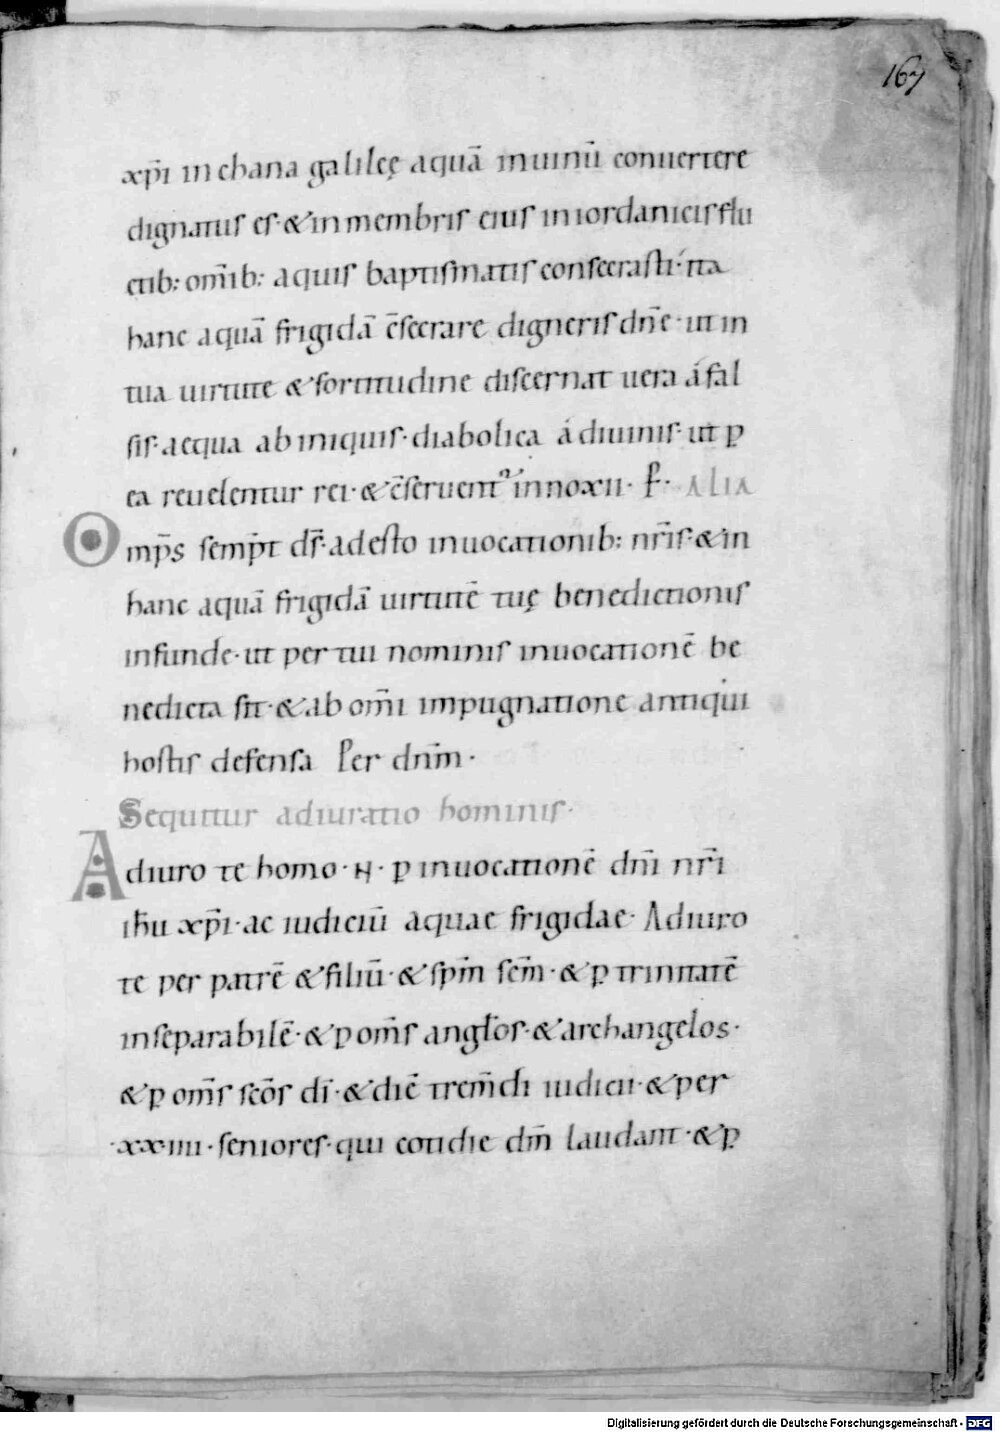 167
xp̄i in chana galileę aquā inuinū conuertere
dignatus es·&in membris eius in iordanicis flu
ctib: om̄ib: aquis baptismatis consecrasti·ita
hanc aquā frigidā c̄secrare digneris dn̄e·ut in
tua uirtute & fortitudine discernat uera á fal
sis·aequa ab iniquis·diabolica á diuinis·ut p̲
ea reuelentur rei·& c̄seruent᷑ innoxii· P̱· ALIA
Omp̄s semp̄t ds̄·adesto inuocationib: nr̄is·&in
hanc aquā frigidā uirtutē tuę benedictionis
infunde·ut per tui nominis inuocationē be
nedicta sit·&ab om̄i impugnatione antiqui
hostis defensa Per dnm̄·
Sequitur adiuratio hominis·
Adiuro te homo·N·p̲ inuocationē dn̄i nr̄i
ih̄u xp̄i·ac iudiciū aquae frigidae· Adiuro
te per patrē & filiū·&sp̄m sc̄m·&p̲ trinitatē
inseparabilē·&p̲ om̄s angl̄os·&archangelos·
&p̲ om̄s sc̄os dī·&diē trem̄di iudicii·&per
·xx·iiii·seniores·qui cotidie dm̄ laudant·&p̲
Digitalisierung gefördert durch die Deutsche Forschungsgemeinschaft - DFG